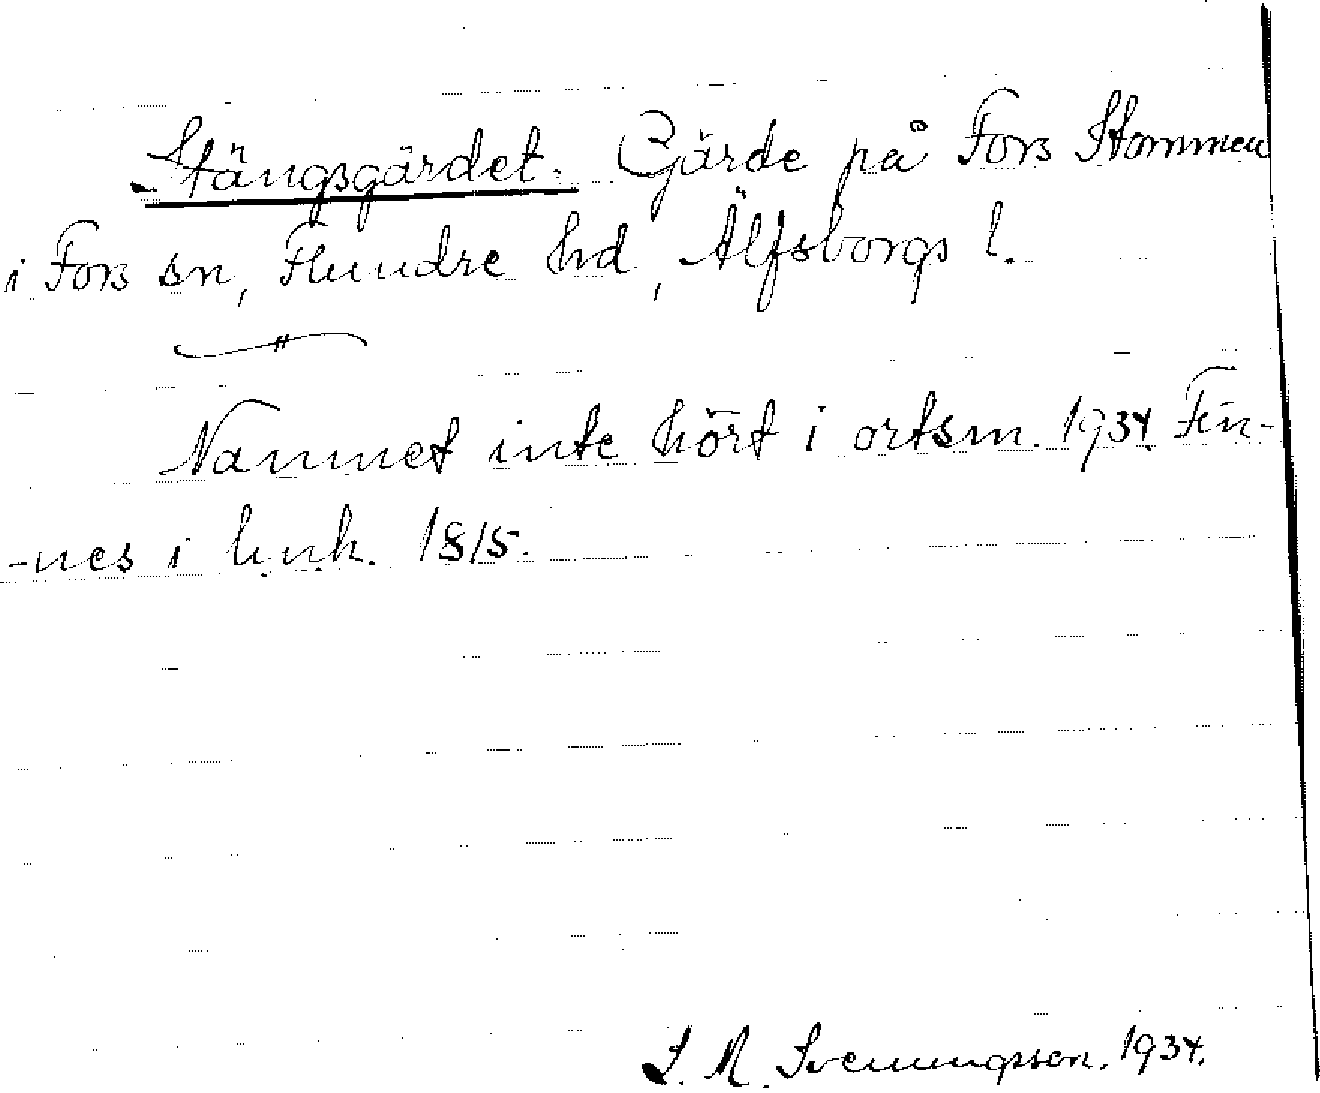 Stängsgärdet. Gärde på Fors Stommen
i Fors sn, Flundre hd, Älfsborgs l.
"
Namnet inte hört i ortsm. 1934 Fin-
-nes i hnk. 1815.
S. M. Svenungsson. 1934.